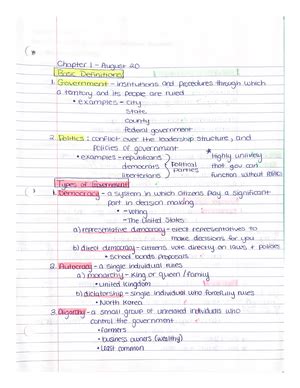 Chapter 1 - August 20
Basic Definitions
1. Government - institutions and procedures through which
a territory and its people are ruled
• examples = city
state
county
federal government
2. Politics: conflict over the leadership structure, and
policies of government
• examples - republicans
democrats
libertarians
Political parties
* Highly unlikely
that you can
function without politics
Types of Government
1. Democracy - a system in which citizens play a significant
part in decision making
• - voting
- The United States
a) representative democracy - elect representatives to
make decisions for you
b) direct democracy - citizens vote directly on laws + policies
• school bonds proposals
2. Autocracy - a single individual rules
a) monarchy - king or queen / family
• United Kingdom
b) dictatorship - single individual who forcefully rules
• North Korea
3. Oligarchy - a small group of unrelated individuals who
control the government
• farmers
• business owners (wealthy)
• least common